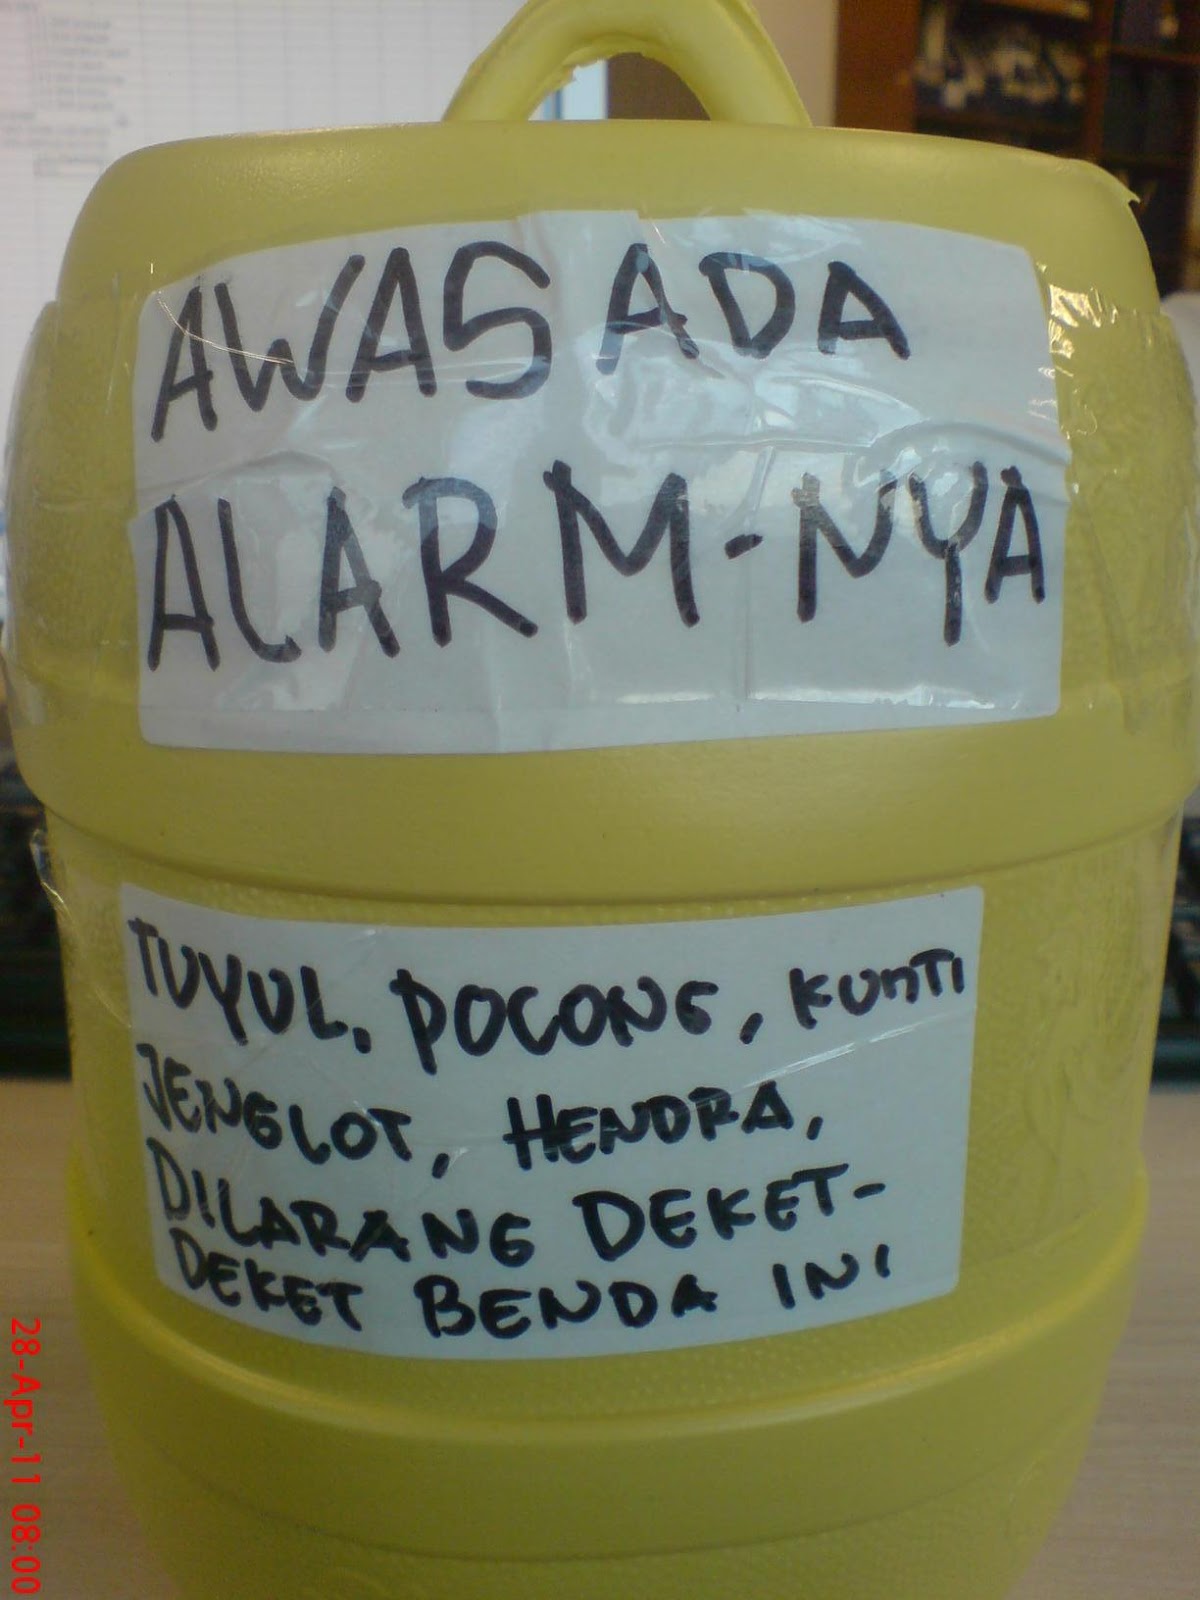 AWAS ADA
ALARM-NYA
TUYUL, POCONG, KUnTI
JENGLOT, HENDRA,
DILARANG DEKET-
DEKET BENDA INI
28-Apr-11 08:00